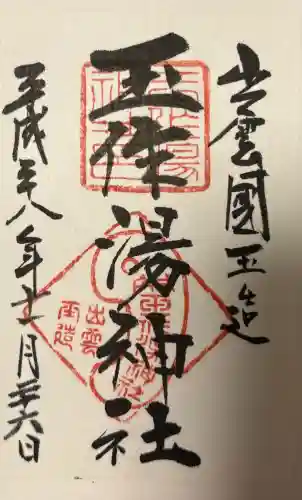 出雲國玉造
玉作湯神社
平成二十八年十一月二十六日
出雲
玉造